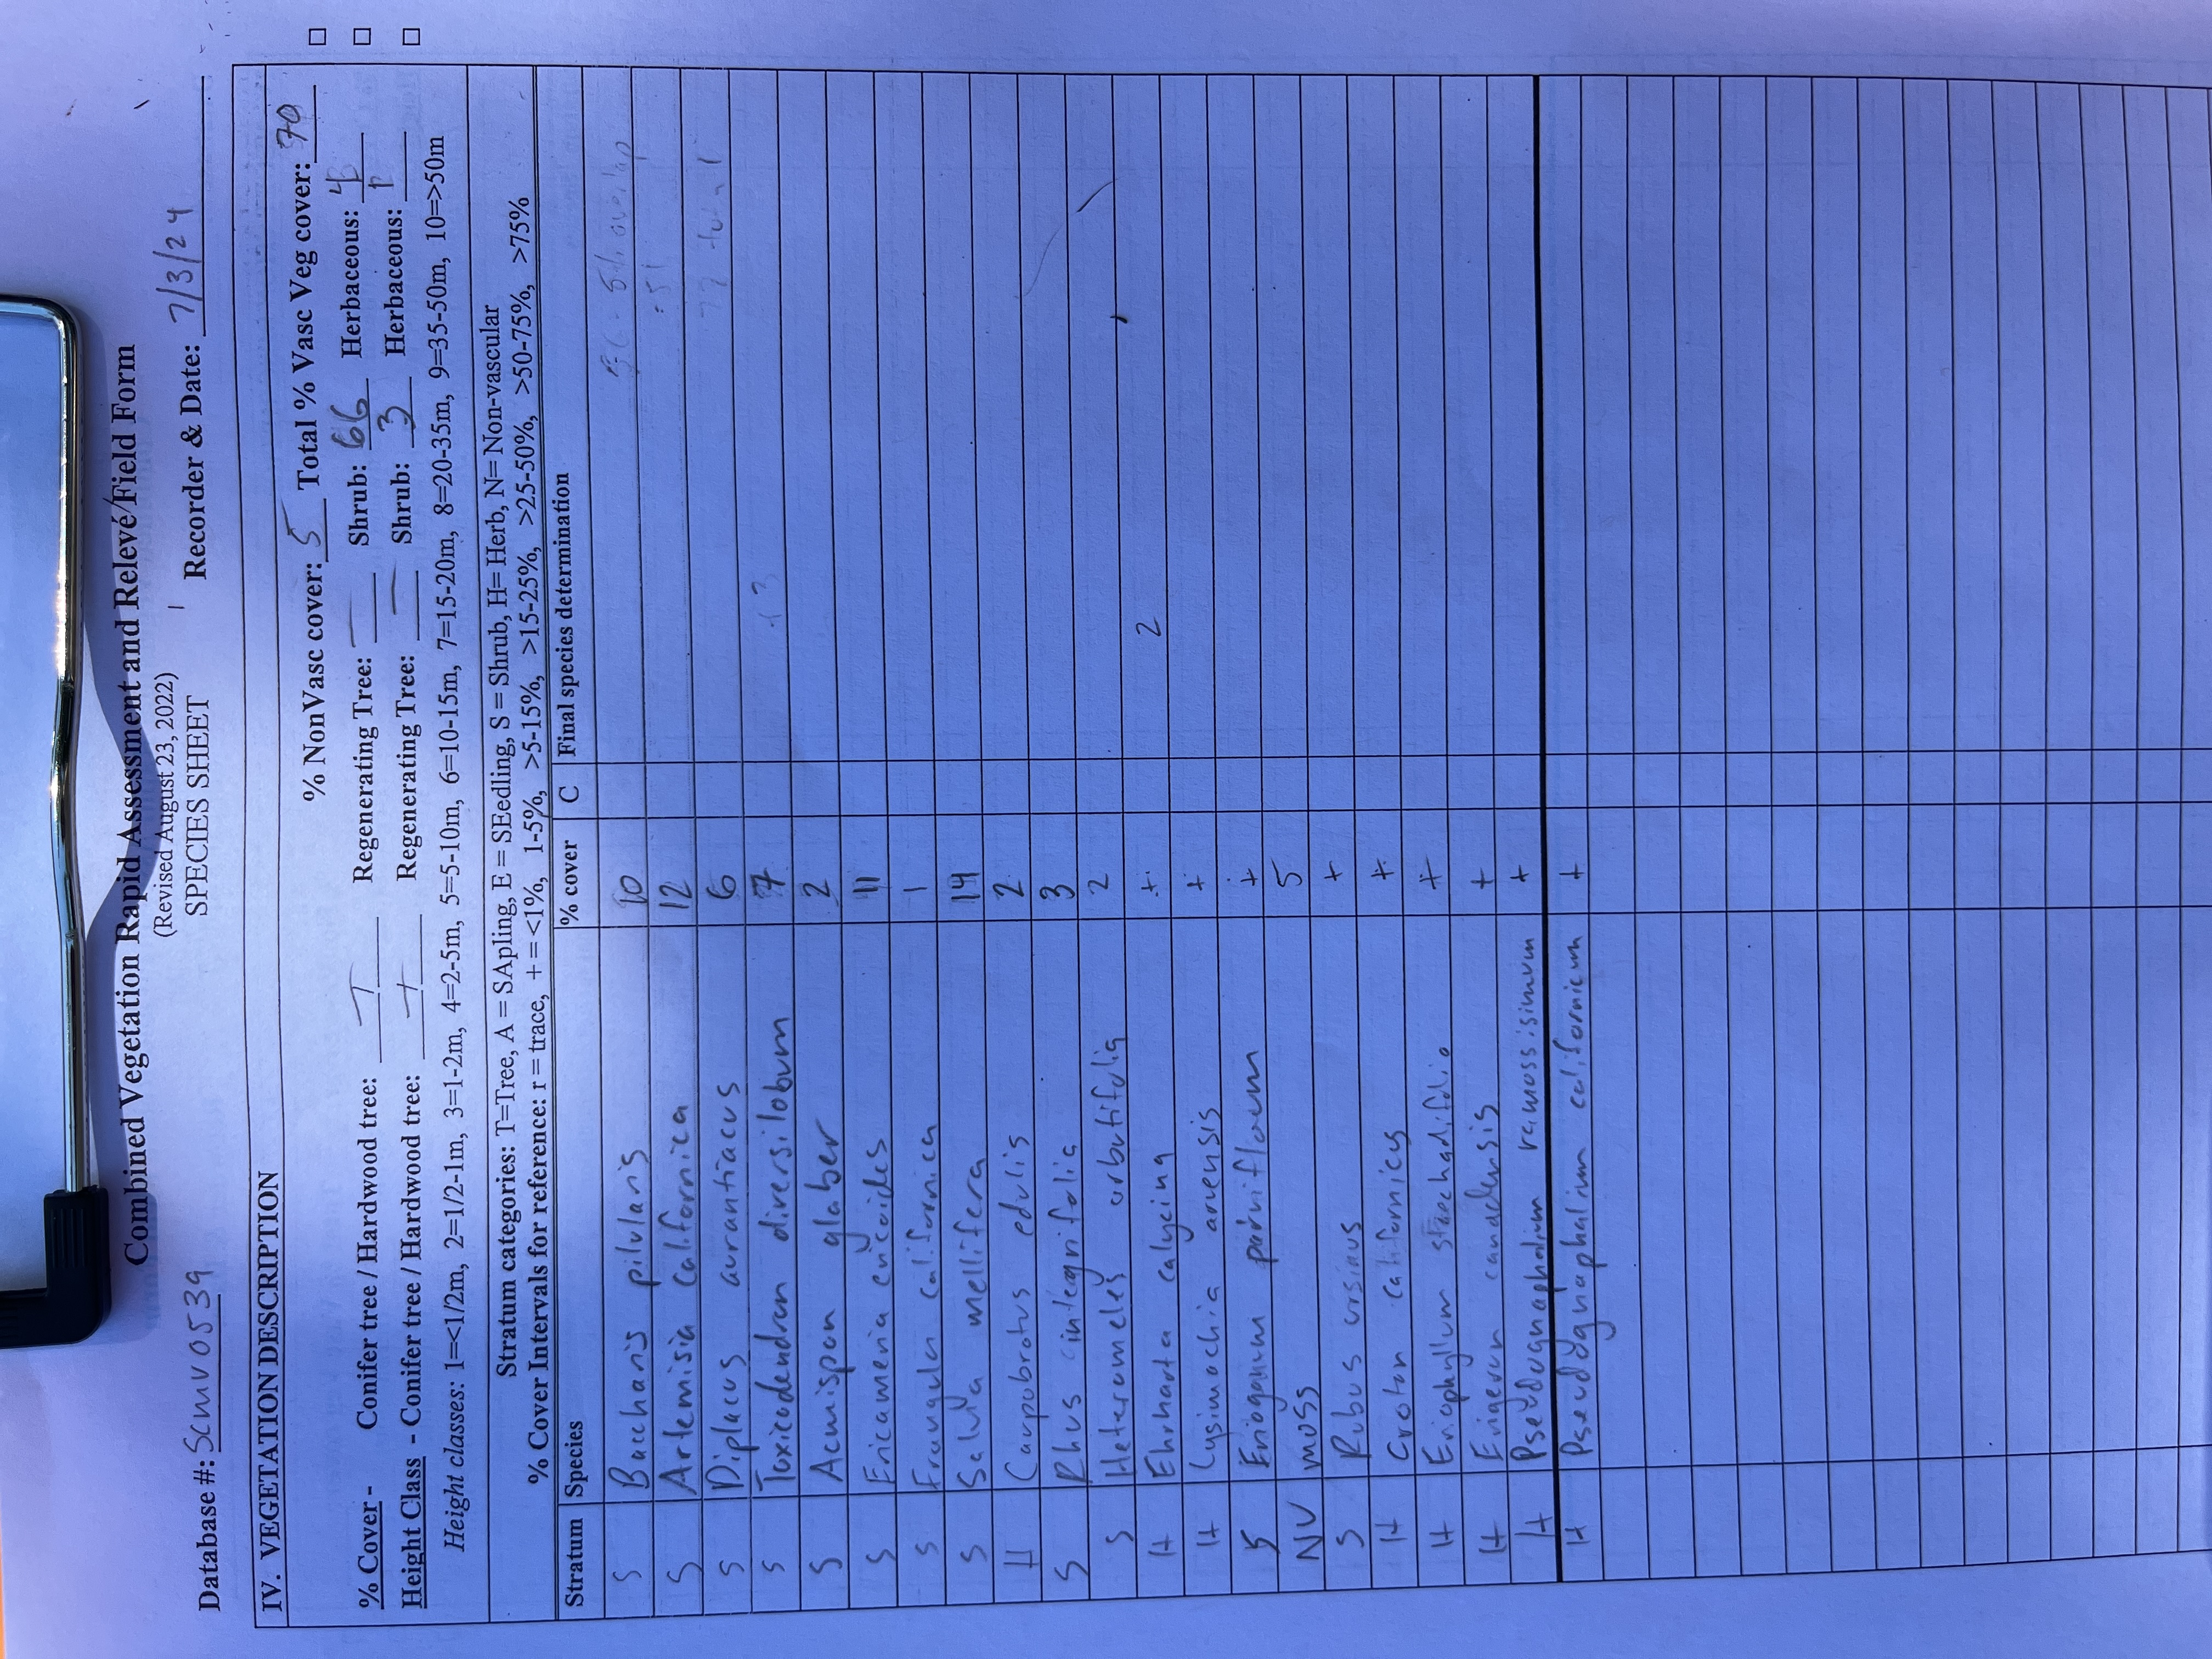 Combined Vegetation Rapid Assessment and Relevé/Field Form
(Revised August 23, 2022)
SPECIES SHEET
Database #: SCMV0539 Recorder & Date: 7/3/24
IV. VEGETATION DESCRIPTION
% NonVasc cover: 5 Total % Vasc Veg cover: 70 □
% Cover - Conifer tree / Hardwood tree: — / — Regenerating Tree: — Shrub: 66 Herbaceous: 4 □
Height Class - Conifer tree / Hardwood tree: — / — Regenerating Tree: — Shrub: 3 Herbaceous: 1 □
Height classes: 1=<1/2m, 2=1/2-1m, 3=1-2m, 4=2-5m, 5=5-10m, 6=10-15m, 7=15-20m, 8=20-35m, 9=35-50m, 10=>50m
Stratum categories: T=Tree, A = SApling, E = SEedling, S = Shrub, H= Herb, N= Non-vascular
% Cover Intervals for reference: r = trace, + = <1%, 1-5%, >5-15%, >15-25%, >25-50%, >50-75%, >75%
Stratum Species % cover C Final species determination
S Baccharis pilularis 10 5% overlap
S Artemisia californica 12
S Diplacus aurantiacus 6 total
S Toxicodendron diversilobum 7
S Acmispon glaber 2
S Ericameria ericoides 11
S Frangula californica 1
S Salvia mellifera 14
H Carpobrotus edulis 2
S Rhus integrifolia 3
S Heteromeles arbutifolia 2
H Ehrharta calycina + 2
H Lysimachia arvensis +
S Eriogonum parvifloum +
NV moss 5
S Rubus ursinus +
H Croton californicus +
H Eriophyllum staechadifolio +
H Erigeron canadensis +
H Pseudognaphalium ramosissimum +
H Pseudognaphalium californicum +